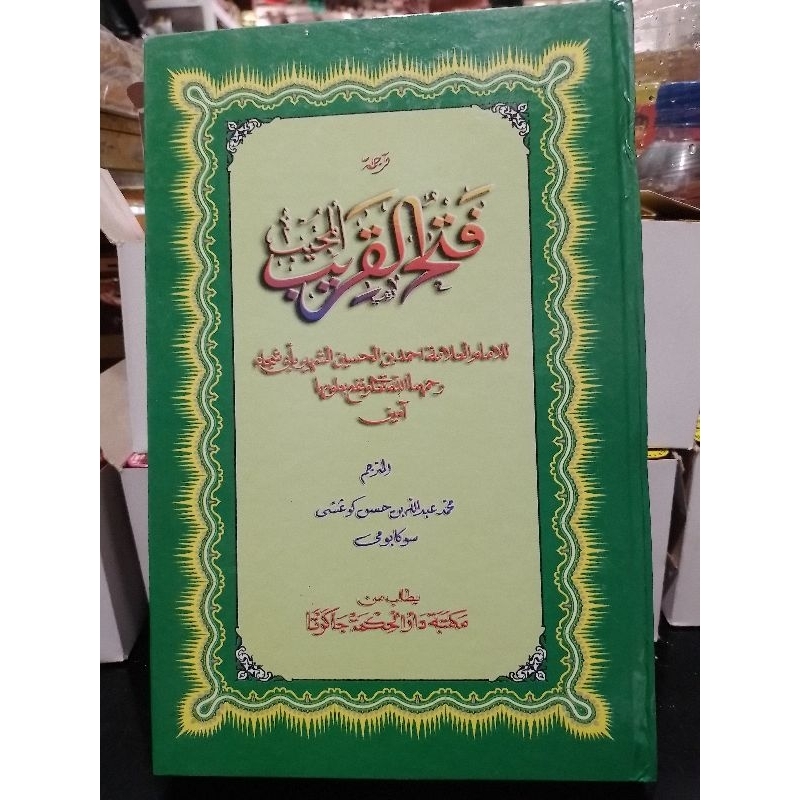 ترجمة
فَتْحُ الْقَرِيْبِ الْمُجِيْبْ
للامام العلامة احمد بن الحسين الشهير بأبى شجاع
رحمهما الله تعالى ونفع بعلومهما
آمين
المترجم
محمد عبدالله بن حسن كوغسى
سوكابومى
يطلب من
مكتبة دار الحكمة جاكرتا